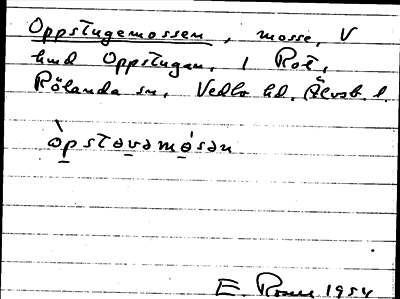 Oppstugemossen, mosse, V
hmd Oppstugan, 1 Rot,
Rölanda sn, Vedbo hd, Älvsb. l.
òpstəvəmósən
E. 1954